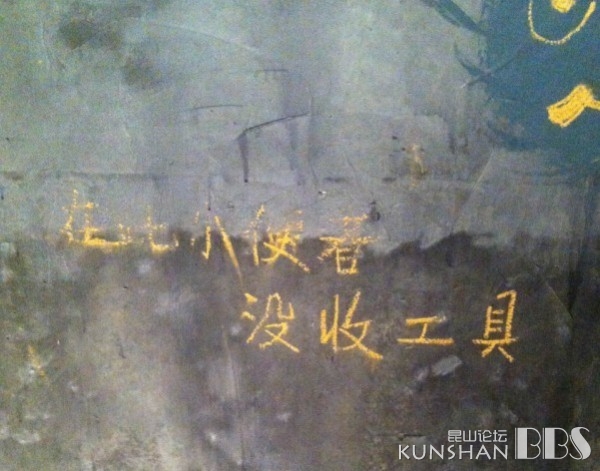 在此小便者
没收工具
昆山论坛
KUNSHAN BBS